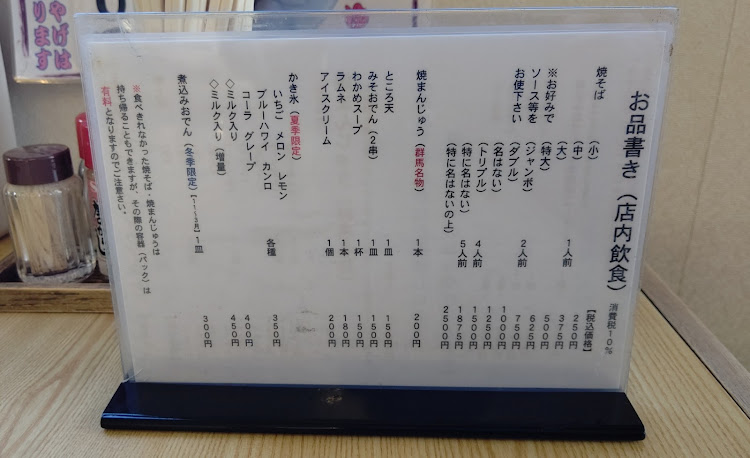 お品書き（店内飲食） 消費税10%
【税込価格】
焼そば （小） 250円
（中） 1人前 375円
（大） 500円
※お好みで （特大） 625円
ソース等を （ジャンボ） 2人前 750円
お使下さい （ダブル） 1000円
（名はない） 1250円
（トリプル） 4人前 1500円
（特に名はない） 5人前 1875円
（特に名はないのよ） 2500円
焼まんじゅう（群馬名物） 1本 200円
ところ天 1皿 150円
みそおでん（2串） 1皿 150円
わかめスープ 1杯 150円
ラムネ 1本 180円
アイスクリーム 1個 200円
かき氷（夏季限定）
いちご メロン レモン
ブルーハワイ カンロ 各種 350円
コーラ グレープ
◇ミルク入り 400円
◇ミルク入り（増量） 450円
煮込みおでん（冬季限定）【11～3月】1皿 300円
※食べきれなかった焼そば・焼まんじゅうは
持ち帰ることもできますが、その際の容器（パック）は
有料となりますのでご注意さい。
やげは
ります